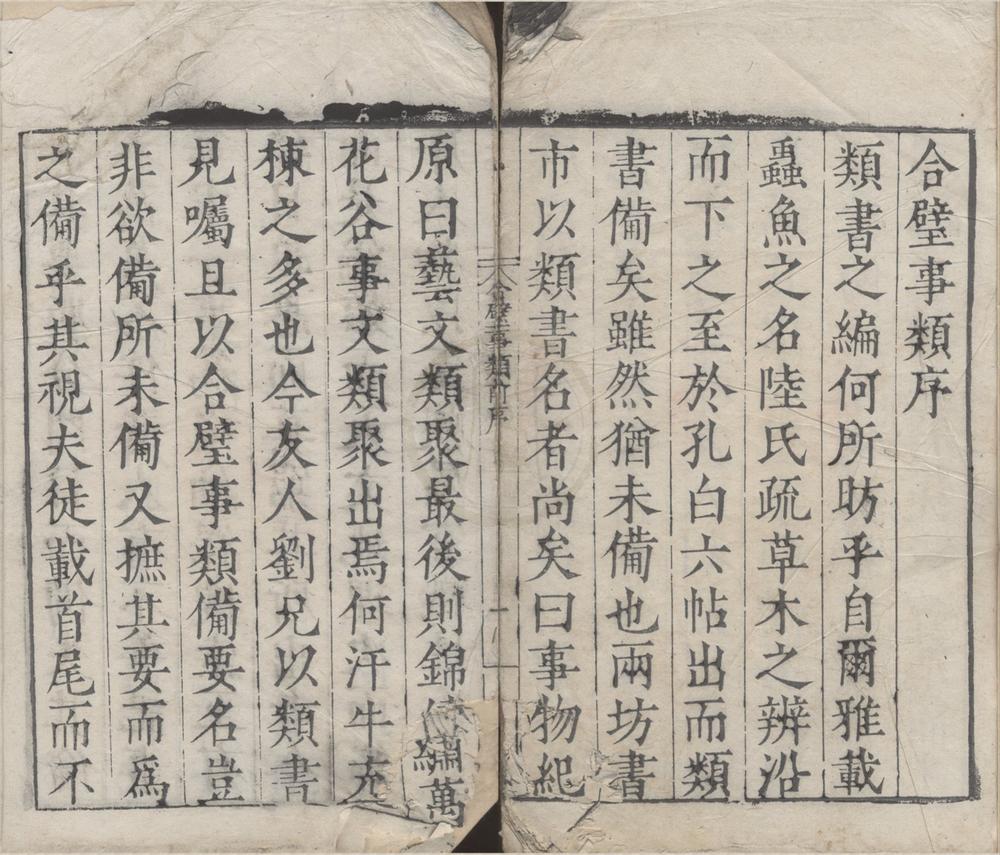 合璧事類序
類書之編何所昉乎自爾雅載
蟲魚之名陸氏疏草木之辨沿
而下之至於孔白六帖出而類
書備矣雖然猶未備也兩坊書
市以類書名者尚矣曰事物紀
合璧事類前序
一
原曰藝文類聚最後則錦繡萬
花谷事文類聚出焉何汗牛充
棟之多也今友人劉兄以類書
見囑且以合璧事類備要名豈
非欲備所未備又摭其要而爲
之備乎其視夫徒載首尾而不